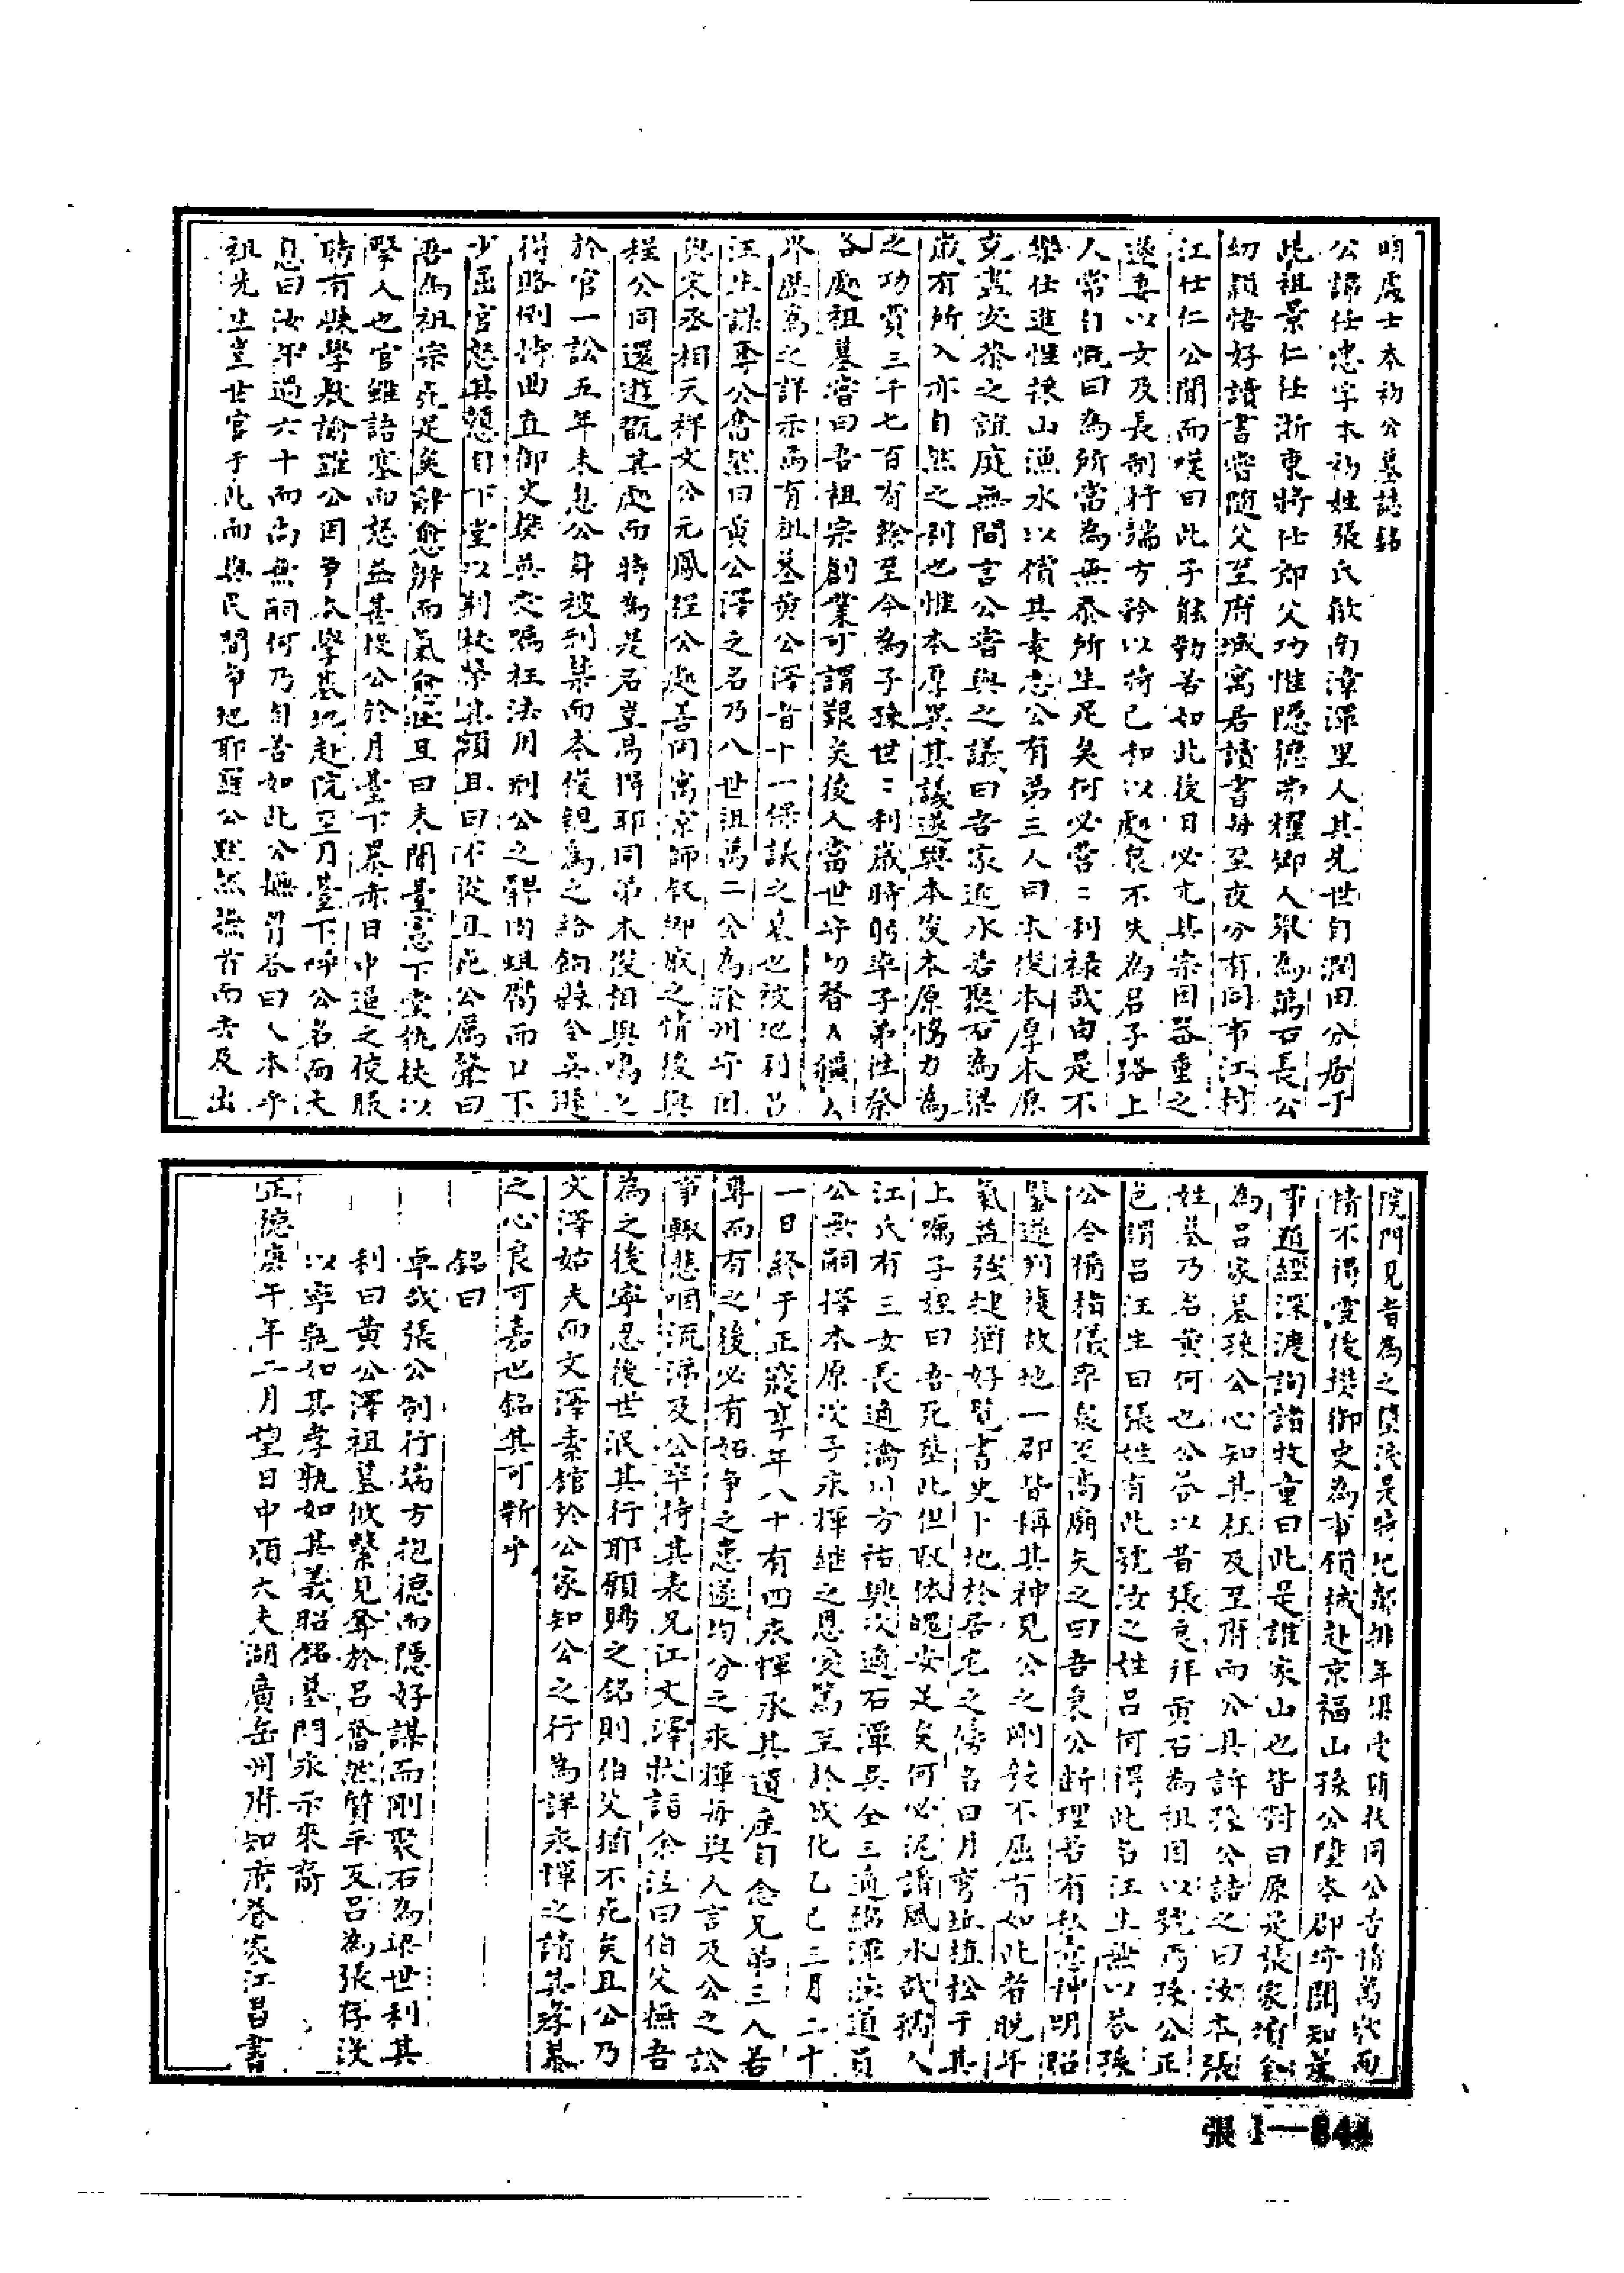 明處士本初公墓誌銘
公諱仕忠字本初姓張氏歙南漳潭里人其先世自潤田分居于
此祖景仁仕浙東將仕郎父功惟隱德弗耀鄉人舉為萬石長公
幼穎悟好讀書嘗隨父至府城寓居讀書每至夜分有同市江村
江仕仁公聞而嘆曰此子能勤苦如此後日必亢其宗因器重之
遂妻以女及長制行端方矜以持己和以處眾不失為君子路上
人常自慨曰為所當為無忝所生足矣何必營二利祿哉由是不
樂仕進性採山漁水以償其素志公有弟三人曰本俊本厚本原
克盡友恭之誼庭無間言公嘗與之議曰吾家近水若聚石為梁
歲有所入亦自然之利也惟本厚異其議遂與本俊本原協力為
之功費三千七百有餘至今為子孫世二利歲時躬率子弟往祭
各處祖墓嘗曰吾祖宗創業可謂艱矣後人當世守勿替人疆人
界歷為之詳示焉有祖墓黃公澤者十一保 之墓也被地利呂
汪生謀奪公奮然曰黃公澤之名乃八世祖萬二公為滁州守回
與宋丞相天祥文公元鳳程公處善同寓京師叙鄉戚之情後與
程公同還遊翫其處而時為是名豈易得耶同弟本俊相與鳴之
於官一訟五年未息公身被刑禁而本俊親為之給餉縣令吳遜
得賂倒恃曲直御史樊英交嘱枉法用刑公之髀肉蛆腐而口不
少屈官怒其戇自下堂以荊杖築其額且曰不從丑死公厲聲曰
吾為祖宗死足矣辭愈辨而氣愈壯且曰未聞臺憲下堂執杖以
擊人也官雖語塞而怒益甚投公於月臺下暴赤日中逼之使服
時有縣學教諭羅公因爭太學基地赴院至月臺下呼公名而夫
息曰汝年過六十而尚無嗣何乃自苦如此公撫胃答曰人本乎
祖先生豈世官于此而與民間爭地耶羅公默然搖首而去及出
院門見者為之墮淚是時
情不得雪後 御史為事鎖械赴京福山孫公陞本郡守聞知
事道經深渡詢諸牧童曰此是誰家山也皆對曰原是張家墳
為呂家墓孫公心知其枉及至府而公具訴孫公詰之曰汝本張
姓墓乃名黃何也公答以昔張良拜黃石為祖因以號焉孫公正
色謂呂汪生曰張姓有此號汝之姓呂何得此名汪生無以答張
公令備粘儀率眾至高廟矢之曰吾秉公斷理若有私意神明昭
鑒遂判復故地一郡皆稱其神見公之剛毅不屈有如此者晚年
氣益強健猶好覽書史卜地於居宅之傍名曰月彎坵植松于其
上囑子姪曰吾死葬此但取体魄安足矣何必泥諸風水哉孺人
江氏有三女長適瀹川方祐興次適石潭吳全三適 潭 道員
公無嗣擇本原次子永揮繼之恩愛篤至於成化乙巳三月二十
一日終于正寢享年八十有四永揮承其遺產自念兄弟三人若
專而有之後必有妬爭之患遂均分之永揮每與人言及公之訟
事輒悲咽流涕及公卒持其表兄江文澤狀詣余泣曰伯父撫吾
為之後寧忍後世泯其行耶願賜之銘則伯父猶不死矣且公乃
文澤姑夫而文澤素館於公家知公之行為詳永揮之請其孝慕
之心良可嘉也銘其可靳乎
銘曰
卓哉張公制行端方抱德而隱好謀而剛聚石為梁世利其
利曰黃公澤祖墓攸繫見奪於呂奮然質平反呂為張存沒
以寧孰如其孝孰如其義昭銘墓門永示來裔
正德庚午年二月望日中順大夫湖廣岳州府知府眷家江昌書
張1—844